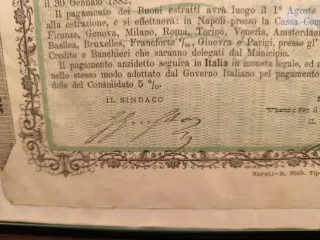 il 30. Gennaio 1882.
Il pagamento dei Buoni estratti avrà luogo il 1° Agosto
alla estrazione, e si effettuerà: in Napoli presso la Cassa Com
Firenze, Genova, Milano, Roma, Torino, Venezia, Amsterdam
Basilea, Bruxelles, Francoforte s/m, Ginevra e Parigi, presso gl'
Credito e Banchieri che saranno delegati dal Municipio.
Il pagamento anzidetto seguirà in Italia in moneta legale, ed
stesso modo adottato dal Governo Italiano pel pagamento
dole del Consolidato 5 0/0.
IL SINDACO
Visto: Per il
Napoli-R. Stab. Tip